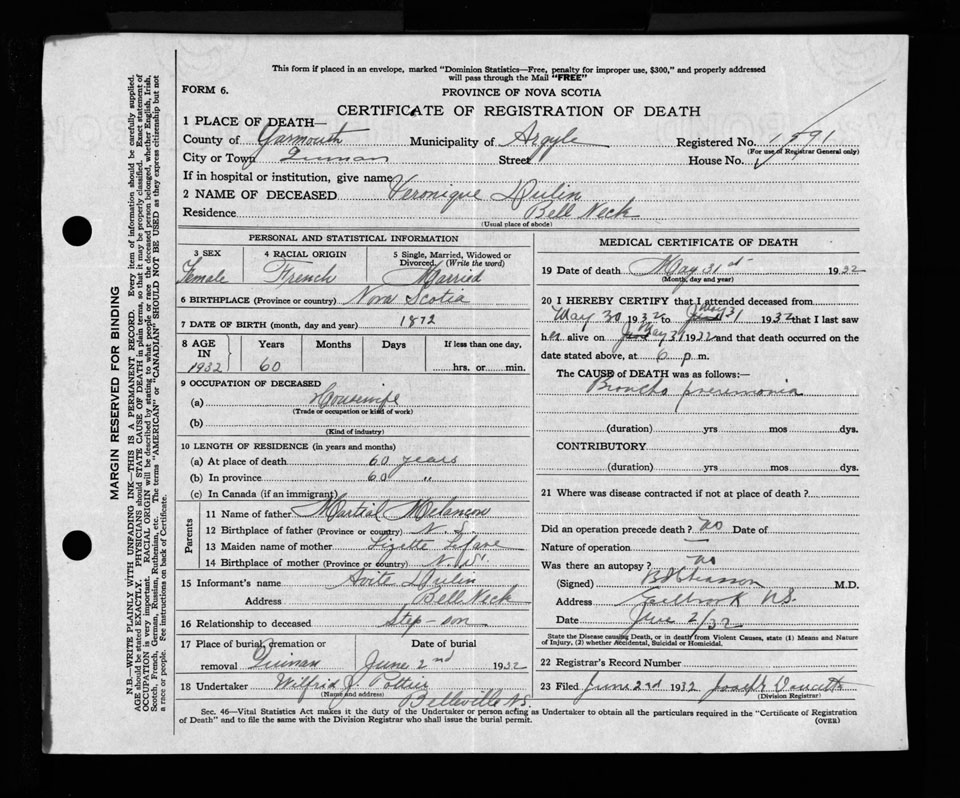 This form if placed in an envelope, marked "Dominion Statistics—Free, penalty for improper use, $300," and properly addressed
will pass through the Mail "FREE"
FORM 6.
PROVINCE OF NOVA SCOTIA
CERTIFICATE OF REGISTRATION OF DEATH
1 PLACE OF DEATH—
County of Yarmouth Municipality of Argyle Registered No.
(For use of Registrar General only)
City or Town Quinan Street House No.
If in hospital or institution, give name
2 NAME OF DECEASED Veronique Dulin
Residence Bell Neck
(Usual place of abode)
PERSONAL AND STATISTICAL INFORMATION
3 SEX 4 RACIAL ORIGIN 5 Single, Married, Widowed or
Divorced. (Write the word)
Female French Married
6 BIRTHPLACE (Province or country) Nova Scotia
7 DATE OF BIRTH (month, day and year) 1872
8 AGE IN Years Months Days If less than one day,
1932 60 hrs. or min.
9 OCCUPATION OF DECEASED
(a) Housewife
(Trade or occupation or kind of work)
(b)
(Kind of industry)
10 LENGTH OF RESIDENCE (in years and months)
(a) At place of death 60 years
(b) In province 60 "
(c) In Canada (if an immigrant)
Parents
11 Name of father Martial Melancon
12 Birthplace of father (Province or country) N. S.
13 Maiden name of mother Lizette Lefave
14 Birthplace of mother (Province or country) N. S.
15 Informant's name Avite Dulin
Address Bell Neck
16 Relationship to deceased Step-son
17 Place of burial, cremation or Date of burial
removal Quinan June 2nd 1932
18 Undertaker Wilfrid J. Pottier
(Name and address)
Belleville N.S.
MEDICAL CERTIFICATE OF DEATH
19 Date of death May 31st 1932
(Month, day and year)
20 I HEREBY CERTIFY that I attended deceased from
May 30 1932 to May 31 1932 that I last saw
her alive on May 31 1932 and that death occurred on the
date stated above, at 6 p. m.
The CAUSE of DEATH was as follows:—
Broncho pneumonia
(duration) yrs mos dys.
CONTRIBUTORY
(duration) yrs mos dys.
21 Where was disease contracted if not at place of death?
Did an operation precede death? no Date of
Nature of operation —
Was there an autopsy? no
(Signed) M.D.
Address N.S.
Date June 2/32
State the Disease causing Death, or in death from Violent Causes, state (1) Means and Nature
of Injury, (2) whether Accidental, Suicidal or Homicidal.
22 Registrar's Record Number
23 Filed June 2nd 1932 Joseph
(Division Registrar)
Sec. 46—Vital Statistics Act makes it the duty of the Undertaker or person acting as Undertaker to obtain all the particulars required in the "Certificate of Registration
of Death" and to file the same with the Division Registrar who shall issue the burial permit.
(OVER)
MARGIN RESERVED FOR BINDING
N.B.—WRITE PLAINLY WITH UNFADING INK—THIS IS A PERMANENT RECORD. Every item of information should be carefully supplied.
AGE should be stated EXACTLY. PHYSICIANS should STATE CAUSE OF DEATH in plain terms, so that it may be properly classified. Exact statement of
OCCUPATION is very important. RACIAL ORIGIN will be described by stating to what people or race the deceased person belonged, whether English, Irish,
Scotch, French, German, Russian, Ruthenian, etc. The terms "AMERICAN" or "CANADIAN" SHOULD NOT BE USED as they express citizenship but not
a race or people. See instructions on back of Certificate.